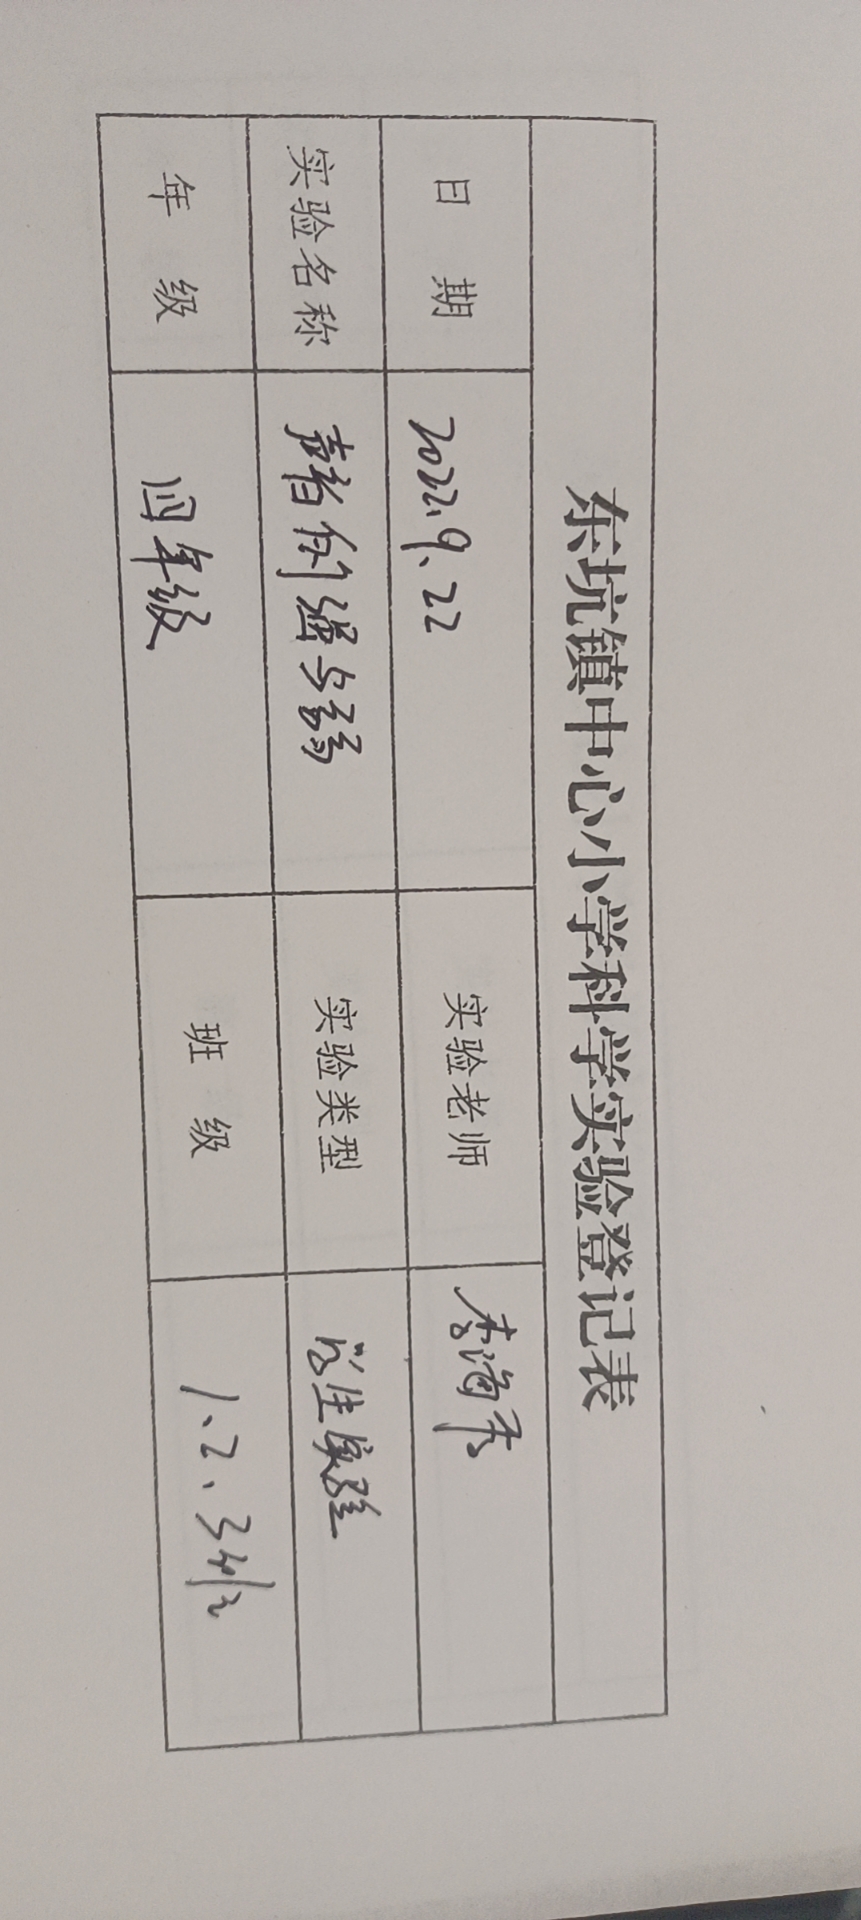 东坑镇中心小学科学实验登记表
日 期 2022.9.22 实验老师 李海秀
实验名称 声音的强与弱 实验类型 学生实验
年 级 四年级 班 级 1、2、3班